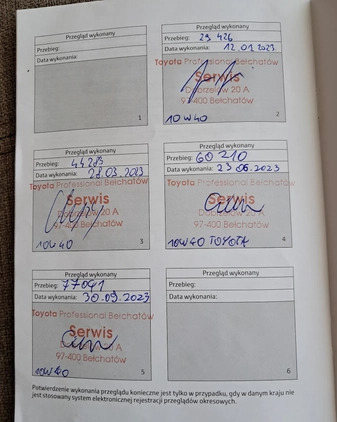 Przegląd wykonany
Przebieg:
Data wykonania:
1
Przegląd wykonany
Przebieg: 29 426
Data wykonania: 12.01.2023
Toyota Professional Bełchatów
Serwis
Dobrzelów 20 A
97-400 Bełchatów
10W40
2
Przegląd wykonany
Przebieg: 44283
Data wykonania: 28.03.2023
Toyota Professional Bełchatów
Serwis
Dobrzelów 20 A
97-400 Bełchatów
10W40
3
Przegląd wykonany
Przebieg: 60 210
Data wykonania: 23 06.2023
Toyota Professional Bełchatów
Serwis
Dobrzelów 20 A
97-400 Bełchatów
10W40 TOYOTA
4
Przegląd wykonany
Przebieg: 77041
Data wykonania: 30.09.2023
Toyota Professional Bełchatów
Serwis
Dobrzelów 20 A
97-400 Bełchatów
10W40
5
Przegląd wykonany
Przebieg:
Data wykonania:
6
Potwierdzenie wykonania przeglądu konieczne jest tylko w przypadku, gdy w danym kraju nie
jest stosowany system elektronicznej rejestracji przeglądów okresowych.